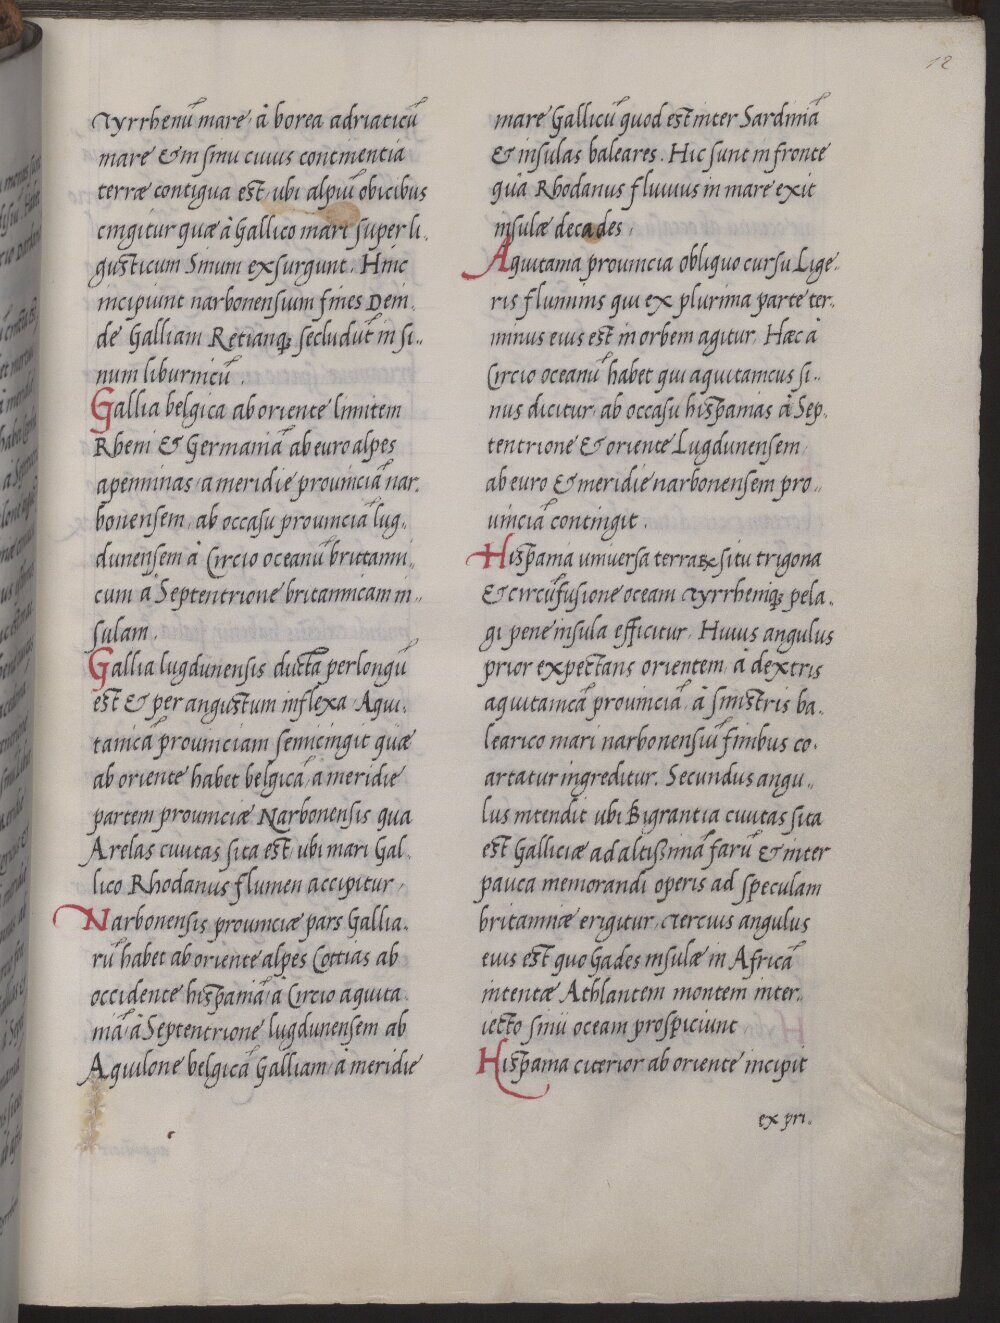 12
Tyrrhenũ mare à borea adriaticũ
mare & in sinu cuius continentia
terræ contigua est, ubi alpiũ obicibus
cingitur quæ à Gallico mari super li.
gusticum Sinum exsurgunt. Hinc
incipiunt narbonensium fines Dein
de Galliam Retianq; secludũt in si..
num liburnicũ.
Gallia belgica ab oriente limitem
Rheni & Germaniã ab euro alpes
apenninas, a meridie prouinciã nar.
bonensem, ab occasu prouinciã lug.
dunensem à Circio oceanũ brittanni..
cum à Septentrione britannicam in..
sulam.
Gallia lugdunensis ducta per longũ
est & per angustum inflexa Aqui.
tanicã prouinciam semicingit quæ
ab oriente habet belgicã, a meridie
partem prouinciæ Narbonensis qua
Arelas ciuitas sita est, ubi mari Gal
lico Rhodanus flumen accipitur,
Narbonensis prouinciæ pars Gallia.
rũ habet ab oriente alpes Cottias ab
occidente hispaniã, à Circio aquita.
niã à Septentrione lugdunensem ab
Aquilone belgicã Galliam, à meridie
mare Gallicũ quod est inter Sardiniã
& insulas baleares. Hic sunt in fronte
quà Rhodanus fluuius in mare exit
insulæ decades,
Aquitania prouincia obliquo cursu Lige.
ris fluminis qui ex plurima parte ter..
minus eius est in orbem agitur, Hæc à
Circio oceanũ habet qui aquitanicus si..
nus dicitur, ab occasu hispanias à Sep.
tentrione & oriente Lugdunensem,
ab euro & meridie narbonensem pro..
uinciã contingit.
Hispania uniuersa terraꝝ situ trigona
& circũfusione oceani Tyrrheniq; pela.
gi pene insula efficitur, Huius angulus
prior expectans orientem, à dextris
aquitanicã prouinciã, à sinistris ba..
learico mari narbonensiũ finibus co.
artatur ingreditur. Secundus angu..
lus intendit ubi Bigrantia ciuitas sita
est Galliciæ ad altißimã farũ & inter
pauca memorandi operis ad speculam
britanniæ erigitur, Tercius angulus
eius est quo Gades insulæ in Africã
intentæ Athlantem montem inter.
iecto sinu oceani prospiciunt
Hispania citerior ab oriente incipit
ex pri.